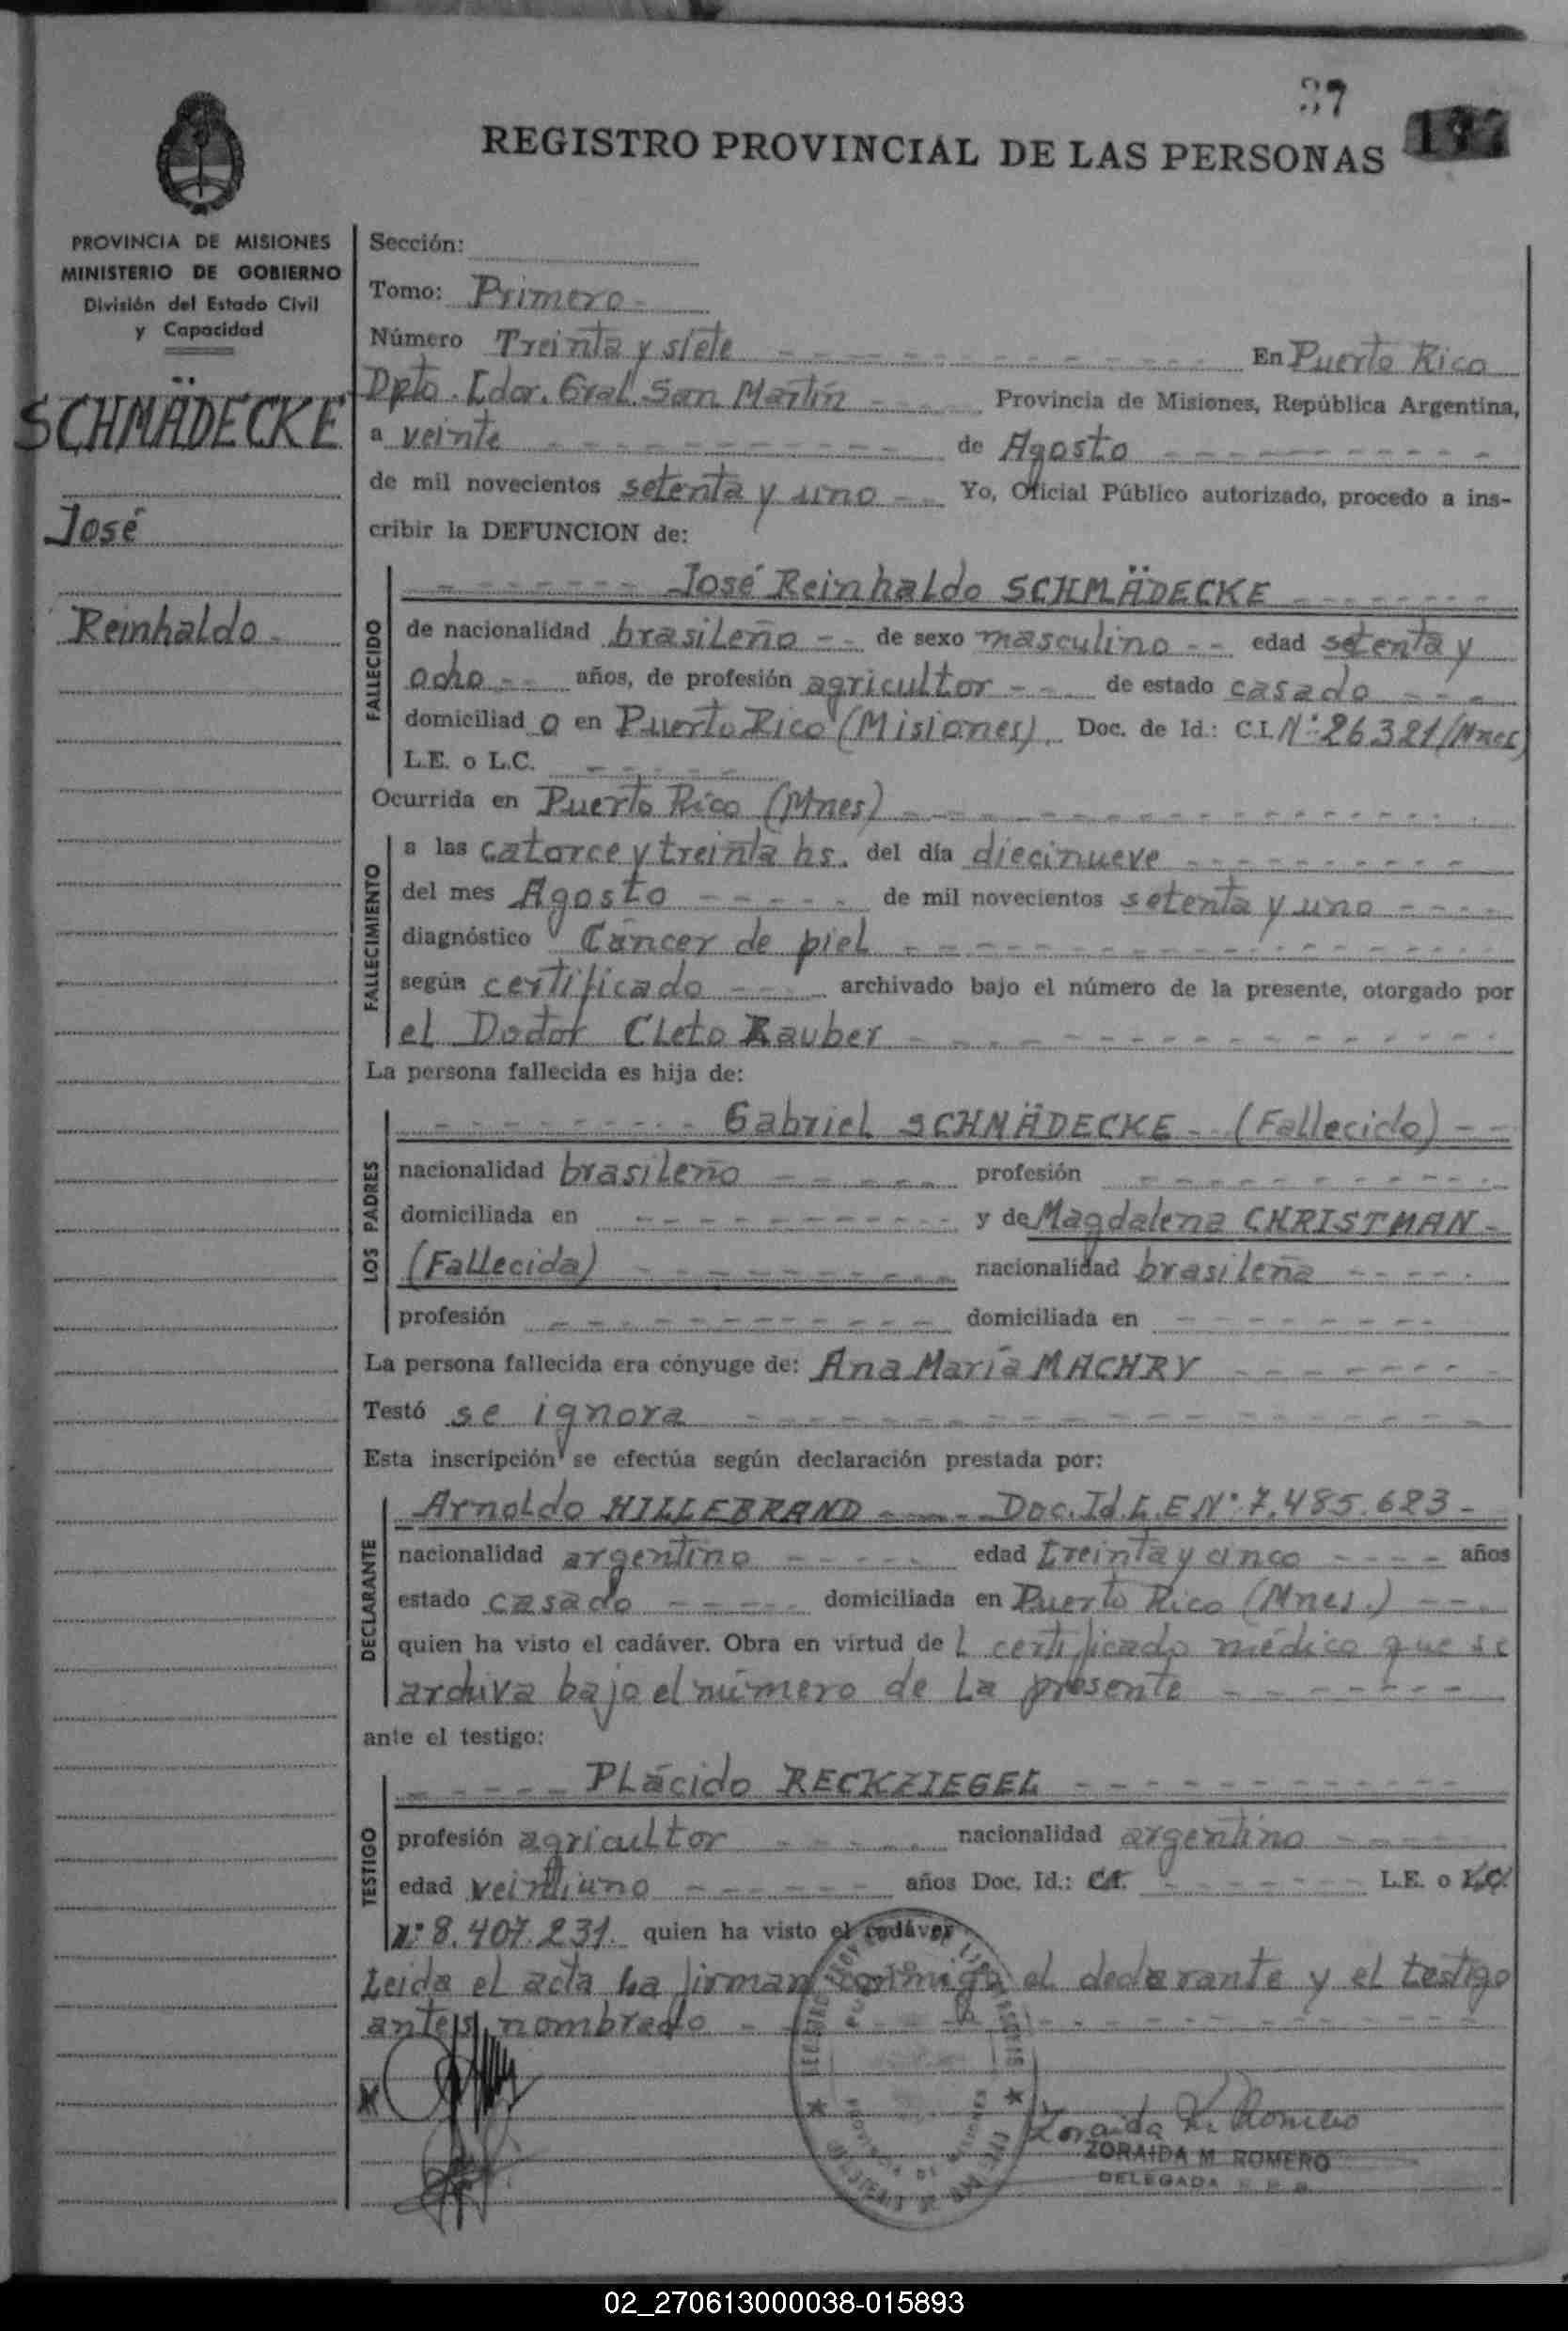 37
REGISTRO PROVINCIAL DE LAS PERSONAS
PROVINCIA DE MISIONES
MINISTERIO DE GOBIERNO
División del Estado Civil
y Capacidad
SCHMÄDECKE
José
Reinhaldo
Sección:
Tomo: Primero
Número Treinta y siete En Puerto Rico
Dpto. Ldor. Gral. San Martín Provincia de Misiones, República Argentina,
a veinte de Agosto
de mil novecientos setenta y uno Yo, Oficial Público autorizado, procedo a ins-
cribir la DEFUNCION de:
FALLECIDO
José Reinhaldo SCHMÄDECKE
de nacionalidad brasileño de sexo masculino edad setenta y
ocho años, de profesión agricultor de estado casado
domiciliad o en Puerto Rico (Misiones). Doc. de Id.: C.I. Nº 26321/Mnes
L.E. o L.C.
Ocurrida en Puerto Rico (Mnes)
FALLECIMIENTO
a las catorce y treinta hs. del día diecinueve
del mes Agosto de mil novecientos setenta y uno
diagnóstico Cáncer de piel
según certificado archivado bajo el número de la presente, otorgado por
el Doctor Cleto Rauber
La persona fallecida es hija de:
LOS PADRES
Gabriel SCHMÄDECKE (Fallecido)
nacionalidad brasileño profesión
domiciliada en y de Magdalena CHRISTMAN
(Fallecida) nacionalidad brasileña
profesión domiciliada en
La persona fallecida era cónyuge de: Ana María MACHRY
Testó se ignora
Esta inscripción se efectúa según declaración prestada por:
DECLARANTE
Arnoldo HILLEBRAND Doc. Id. L.E Nº 7.485.623
nacionalidad argentino edad treinta y cinco años
estado casado domiciliada en Puerto Rico (Mnes.)
quien ha visto el cadáver. Obra en virtud de l certificado médico que se
archiva bajo el número de la presente
ante el testigo:
TESTIGO
Plácido RECKZIEGEL
profesión agricultor nacionalidad argentino
edad veintiuno años Doc. Id.: C.I. L.E. o L.C.
Nº 8.407.231. quien ha visto el cadáver
Leida el acta la firman conmigo el declarante y el testigo
antes nombrado
Zoraida M. Romero
ZORAIDA M. ROMERO
DELEGADA
02_270613000038-015893